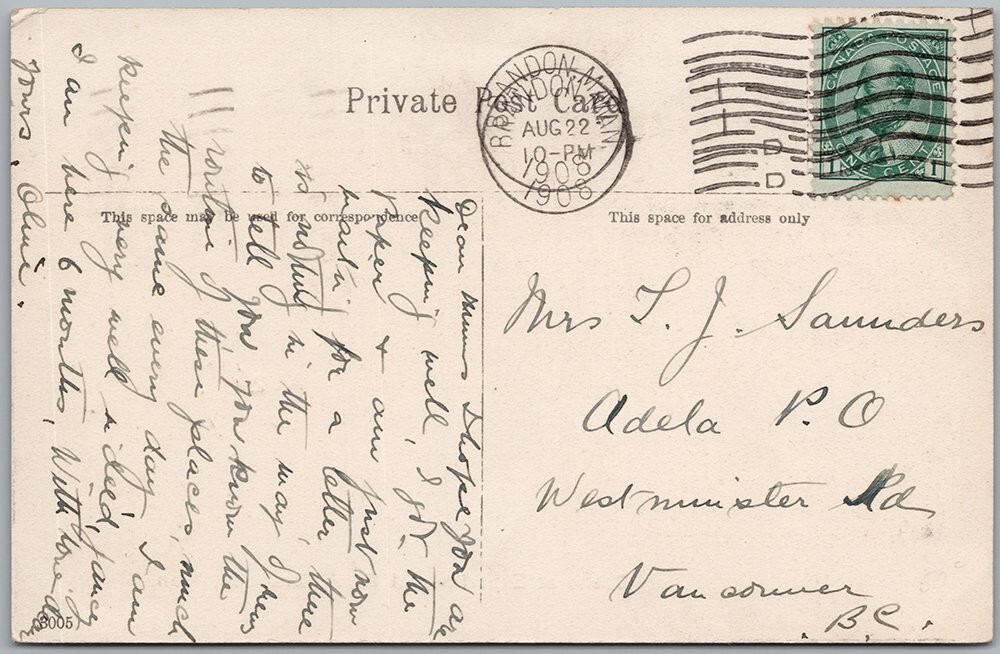 Private Post Card
BRANDON MAN
BRANDON MAN
AUG 22
10-PM
1908
1908
D
D
CANADA POSTAGE
1 ONE CENT 1
This space may be used for correspondence
This space for address only
Dear Mums I hope you are
keeping well, I got the
paper & am just now
waitin for a letter there
is nothing in the way of news
to tell you you know the
routine of these places, much
the same every day I am
keeping very well indeed, since
I am here 6 months, With love
yours, Olive.
Mrs T. J. Saunders
Adela P. O
Westminister Rd
Vancouver
B.C.
3005